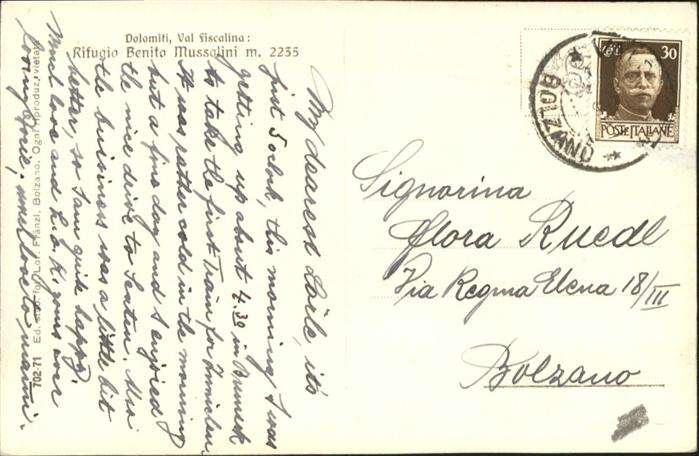 Dolomiti, Val Fiscalina:
Rifugio Benito Mussolini m. 2235
My dearest it's
just 5 oclock, this morning I was
getting up about 4.30 in Bruneck
to take the first Train for
It was rather cold in the morning
but a fine day and I enjoyed
the nice drive to Sexten. Also
the business was a little bit
better, so I am quite happy.
Much love and yours ever
loving much love to
702-71 Ed. Lor. Fränzl. Bolzano. Ogni riproduz. vietata
30
POSTE ITALIANE
BOLZANO
Signorina
Flora Ruedl
Via Regina Elena 18/III
Bolzano